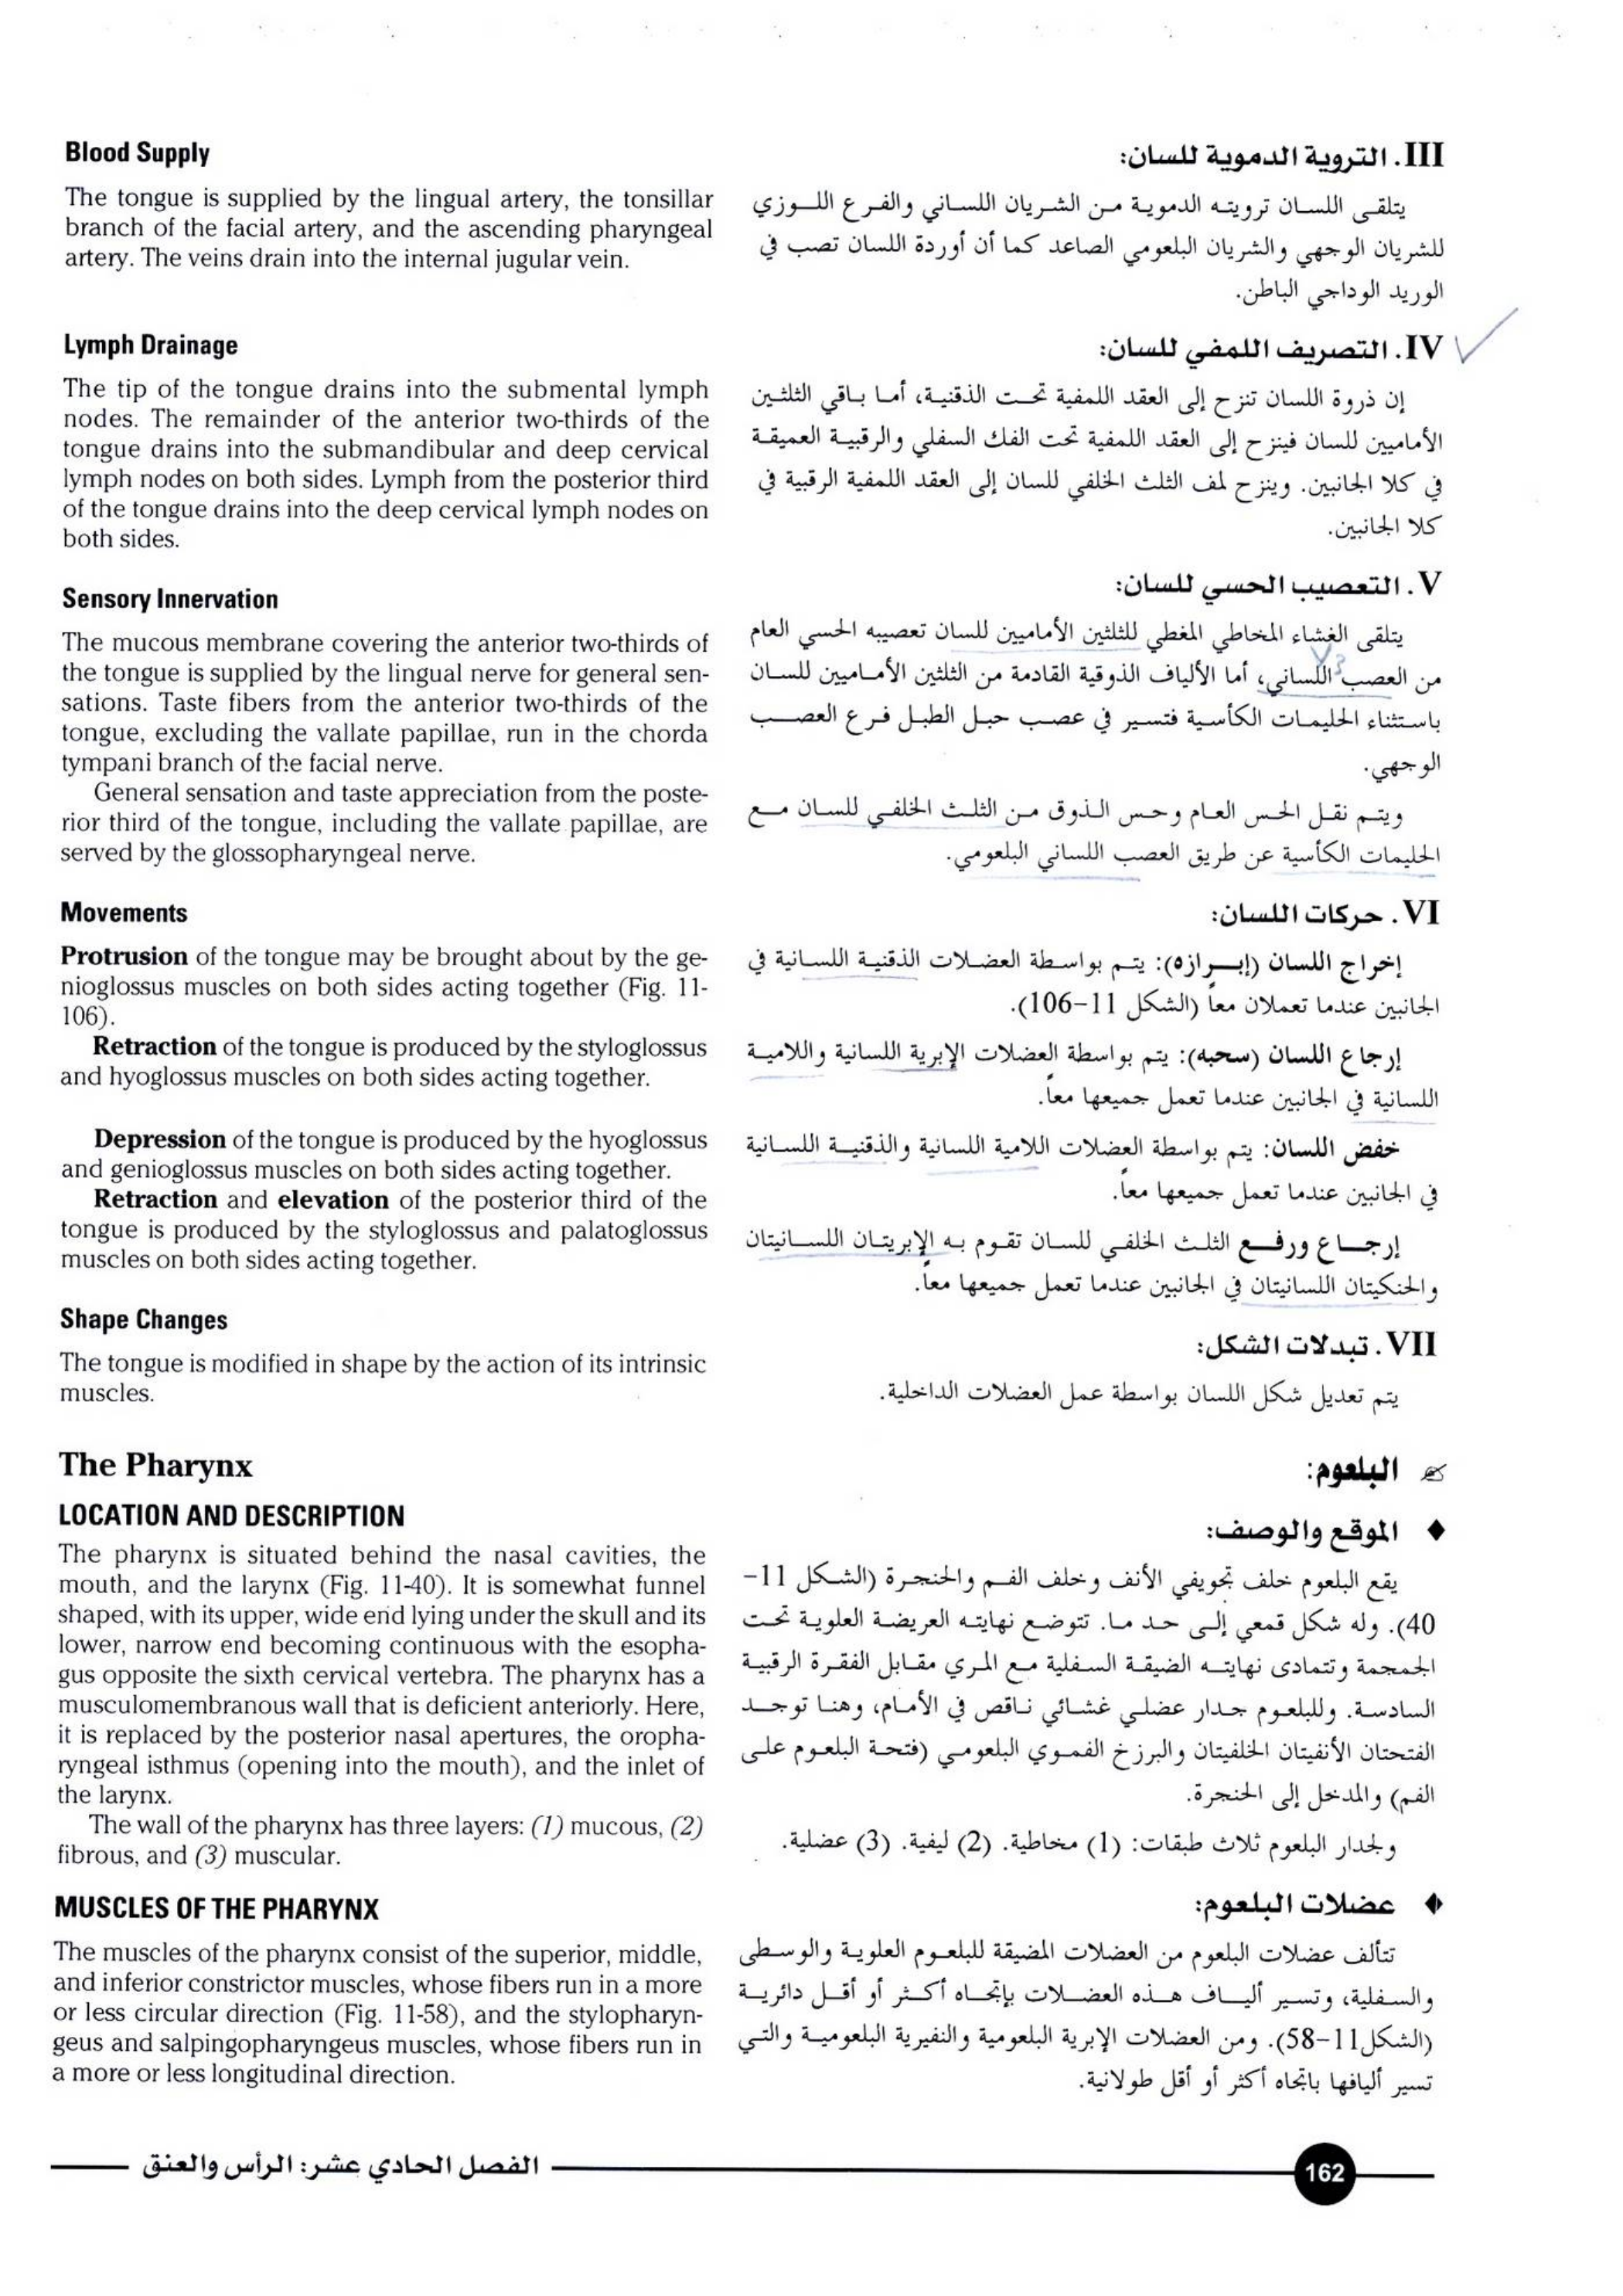 Blood Supply
The tongue is supplied by the lingual artery, the tonsillar
branch of the facial artery, and the ascending pharyngeal
artery. The veins drain into the internal jugular vein.
Lymph Drainage
The tip of the tongue drains into the submental lymph
nodes. The remainder of the anterior two-thirds of the
tongue drains into the submandibular and deep cervical
lymph nodes on both sides. Lymph from the posterior third
of the tongue drains into the deep cervical lymph nodes on
both sides.
Sensory Innervation
The mucous membrane covering the anterior two-thirds of
the tongue is supplied by the lingual nerve for general sen-
sations. Taste fibers from the anterior two-thirds of the
tongue, excluding the vallate papillae, run in the chorda
tympani branch of the facial nerve.
General sensation and taste appreciation from the poste-
rior third of the tongue, including the vallate papillae, are
served by the glossopharyngeal nerve.
Movements
Protrusion of the tongue may be brought about by the ge-
nioglossus muscles on both sides acting together (Fig. 11-
106).
Retraction of the tongue is produced by the styloglossus
and hyoglossus muscles on both sides acting together.
Depression of the tongue is produced by the hyoglossus
and genioglossus muscles on both sides acting together.
Retraction and elevation of the posterior third of the
tongue is produced by the styloglossus and palatoglossus
muscles on both sides acting together.
Shape Changes
The tongue is modified in shape by the action of its intrinsic
muscles.
The Pharynx
LOCATION AND DESCRIPTION
The pharynx is situated behind the nasal cavities, the
mouth, and the larynx (Fig. 11-40). It is somewhat funnel
shaped, with its upper, wide end lying under the skull and its
lower, narrow end becoming continuous with the esopha-
gus opposite the sixth cervical vertebra. The pharynx has a
musculomembranous wall that is deficient anteriorly. Here,
it is replaced by the posterior nasal apertures, the oropha-
ryngeal isthmus (opening into the mouth), and the inlet of
the larynx.
The wall of the pharynx has three layers: (1) mucous, (2)
fibrous, and (3) muscular.
MUSCLES OF THE PHARYNX
The muscles of the pharynx consist of the superior, middle,
and inferior constrictor muscles, whose fibers run in a more
or less circular direction (Fig. 11-58), and the stylopharyn-
geus and salpingopharyngeus muscles, whose fibers run in
a more or less longitudinal direction.
III. التروية الدموية للسان:
يتلقى اللسان ترويته الدموية من الشريان اللساني والفرع اللوزي
للشريان الوجهي والشريان البلعومي الصاعد كما أن أوردة اللسان تصب في
الوريد الوداجي الباطن.
IV. التصريف اللمفي للسان:
إن ذروة اللسان تنزح إلى العقد اللمفية تحت الذقنية، أما باقي الثلثين
الأماميين للسان فينزح إلى العقد اللمفية تحت الفك السفلي والرقبية العميقة
في كلا الجانبين. وينزح لمف الثلث الخلفي للسان إلى العقد اللمفية الرقبية في
كلا الجانبين.
V. التعصيب الحسي للسان:
يتلقى الغشاء المخاطي المغطي للثلثين الأماميين للسان تعصيبه الحسي العام
من العصب اللساني، أما الألياف الذوقية القادمة من الثلثين الأماميين للسان
باستثناء الحليمات الكأسية فتسير في عصب حبل الطبل فرع العصب
الوجهي.
ويتم نقل الحس العام وحس الذوق من الثلث الخلفي للسان مع
الحليمات الكأسية عن طريق العصب اللساني البلعومي.
VI. حركات اللسان:
إخراج اللسان (إبرازه): يتم بواسطة العضلات الذقنية اللسانية في
الجانبين عندما تعملان معاً (الشكل 11-106).
إرجاع اللسان (سحبه): يتم بواسطة العضلات الإبرية اللسانية واللامية
اللسانية في الجانبين عندما تعمل جميعها معاً.
خفض اللسان: يتم بواسطة العضلات اللامية اللسانية والذقنية اللسانية
في الجانبين عندما تعمل جميعها معاً.
إرجاع ورفع الثلث الخلفي للسان تقوم به الإبريتان اللسانيتان
والحنكيتان اللسانيتان في الجانبين عندما تعمل جميعها معاً.
VII. تبدلات الشكل:
يتم تعديل شكل اللسان بواسطة عمل العضلات الداخلية.
البلعوم:
♦ الموقع والوصف:
يقع البلعوم خلف تجويفي الأنف وخلف الفم والحنجرة (الشكل 11-
40). وله شكل قمعي إلى حد ما. تتوضع نهايته العريضة العلوية تحت
الجمجمة وتتمادى نهايته الضيقة السفلية مع المري مقابل الفقرة الرقبية
السادسة. وللبلعوم جدار عضلي غشائي ناقص في الأمام، وهنا توجد
الفتحتان الأنفيتان الخلفيتان والبرزخ الفموي البلعومي (فتحة البلعوم على
الفم) والمدخل إلى الحنجرة.
ولجدار البلعوم ثلاث طبقات: (1) مخاطية. (2) ليفية. (3) عضلية.
♦ عضلات البلعوم:
تتألف عضلات البلعوم من العضلات المضيقة للبلعوم العلوية والوسطى
والسفلية، وتسير ألياف هذه العضلات بإتجاه أكثر أو أقل دائرية
(الشكل11-58). ومن العضلات الإبرية البلعومية والنفيرية البلعومية والتي
تسير أليافها باتجاه أكثر أو أقل طولانية.
الفصل الحادي عشر: الرأس والعنق
162